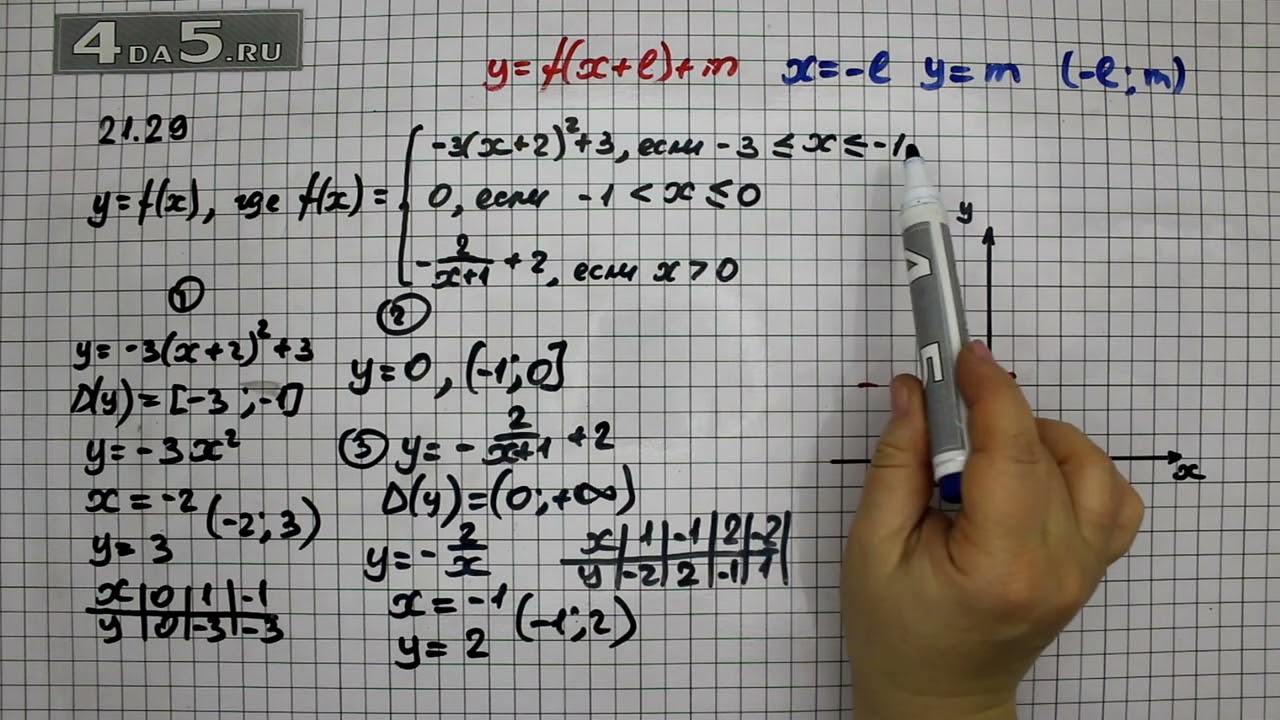 4DA5.RU
y=f(x+l)+m x=-l y=m (-l;m)
21.29
y=f(x), где f(x)=
-3(x+2)²+3, если -3 ≤ x ≤ -1
0, если -1 < x ≤ 0
-2/(x+1) + 2, если x > 0
①
y=-3(x+2)²+3
D(y)=[-3;-1]
y=-3x²
x=-2
y=3
(-2;3)
x|0|1|-1
y|0|-3|-3
②
y=0, (-1;0]
③ y=-2/(x+1)+2
D(y)=(0;+∞)
y=-2/x
x|1|-1|2|-2|
y|-2|2|-1|1|
x=-1
y=2
(-1;2)
y
x